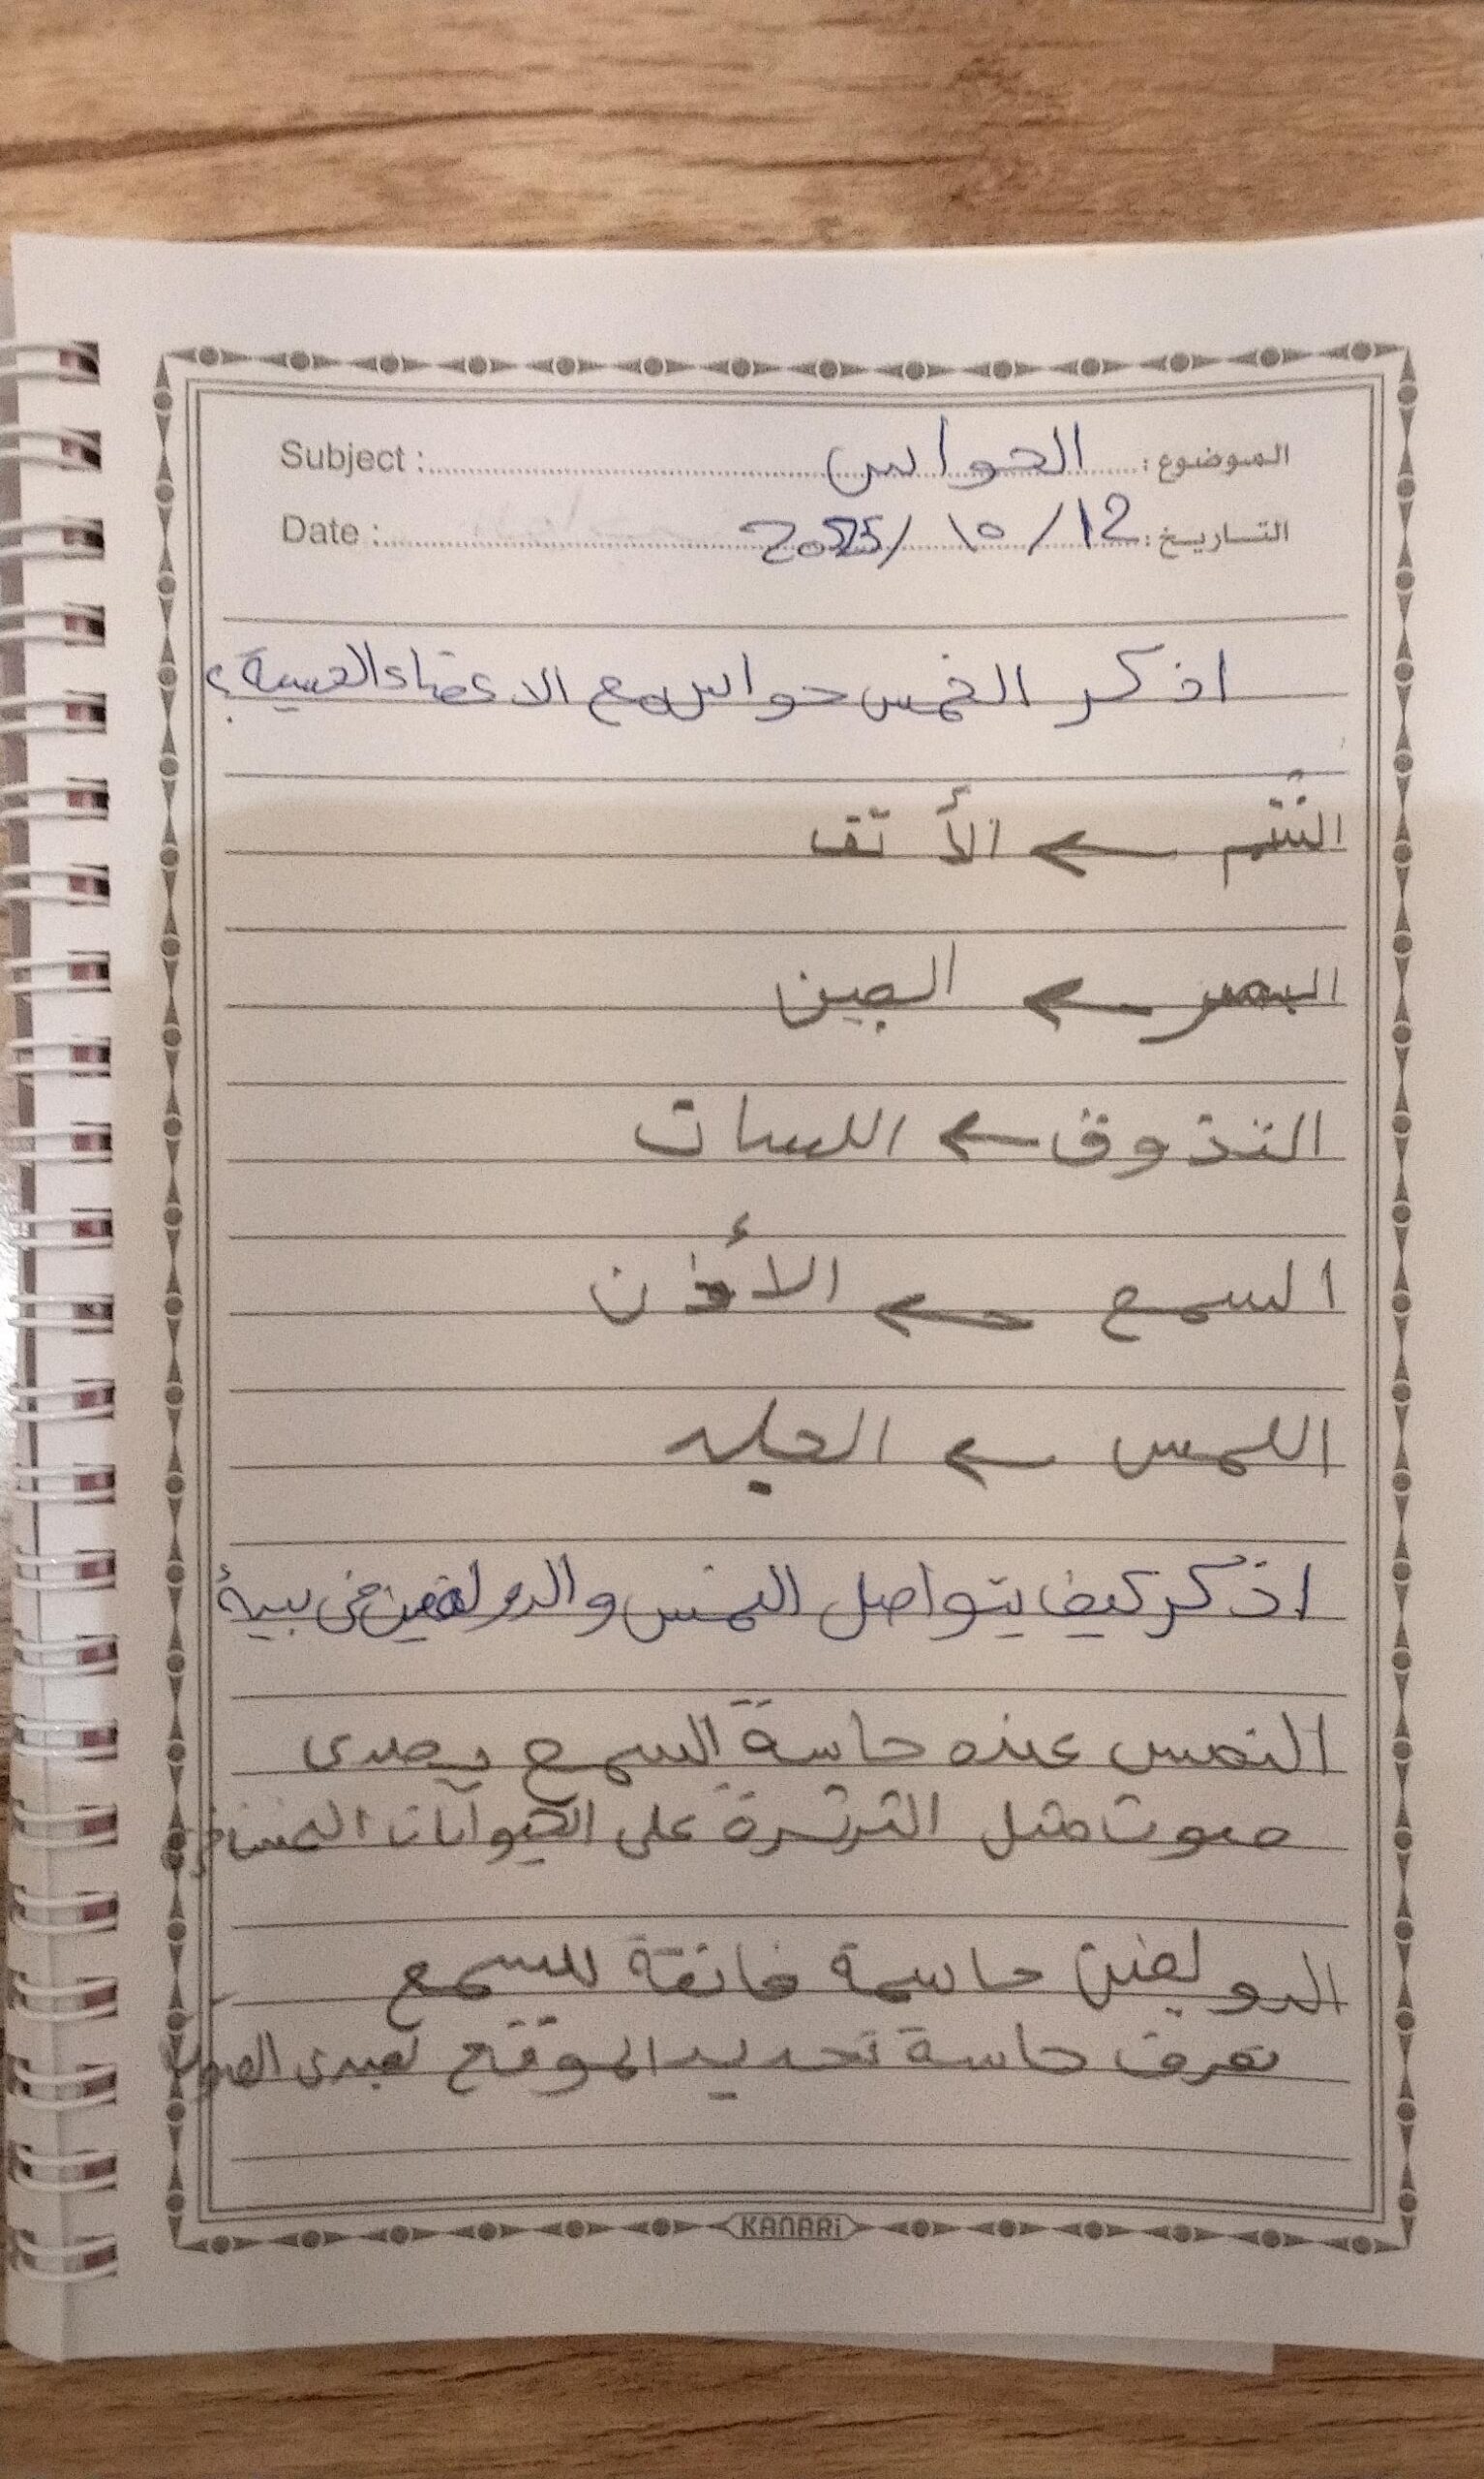 Subject : الموضوع : الحواس
Date : التاريخ : 12/ 10/ 2025
اذكر الخمس حواس مع الاعضاء الحسية؟
الشم ← الأنف
البصر ← العين
التذوق ← اللسان
السمع ← الأذن
اللمس ← الجلد
اذكر كيف يتواصل النمس والدولفين في بيئة
النمس عنده حاسة السمع يصدى
صوت مثل الثرثرة على الحيوانات
الدولفين حاسة فائقة للسمع
تعرف حاسة تحديد الموقع لصدى الصوت
KANARi